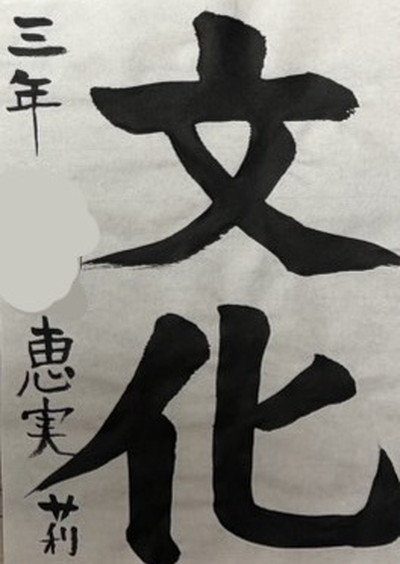 文化
三年
恵実莉